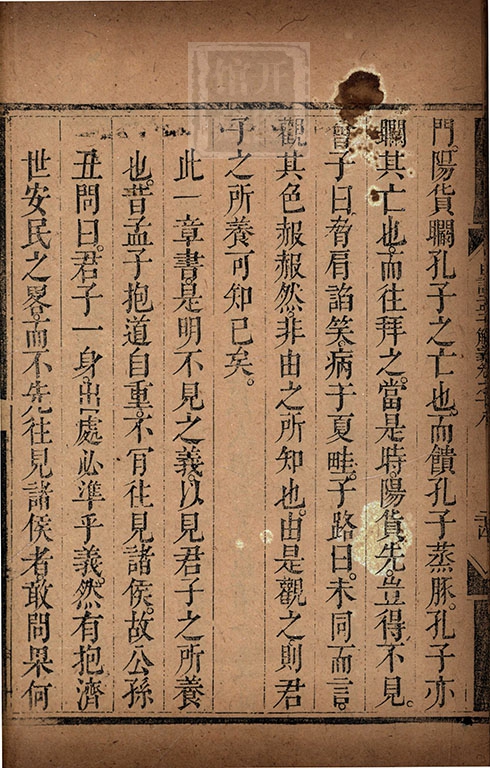 門。陽貨矙孔子之亡也。而饋孔子蒸豚。孔子亦
矙其亡也。而往拜之。當是時。陽貨先。豈得不見。
曾子曰。脅肩諂笑。病于夏畦。子路曰。未同而言。
觀其色赧赧然。非由之所知也。由是觀之。則君
子之所養可知已矣。
此一章書。是明不見之義。以見君子之所養
也。昔孟子抱道自重。不肎往見諸侯。故公孫
丑問曰。君子一身。出處必準乎義。然有抱濟
世安民之畧。而不先往見諸侯者。敢問果何